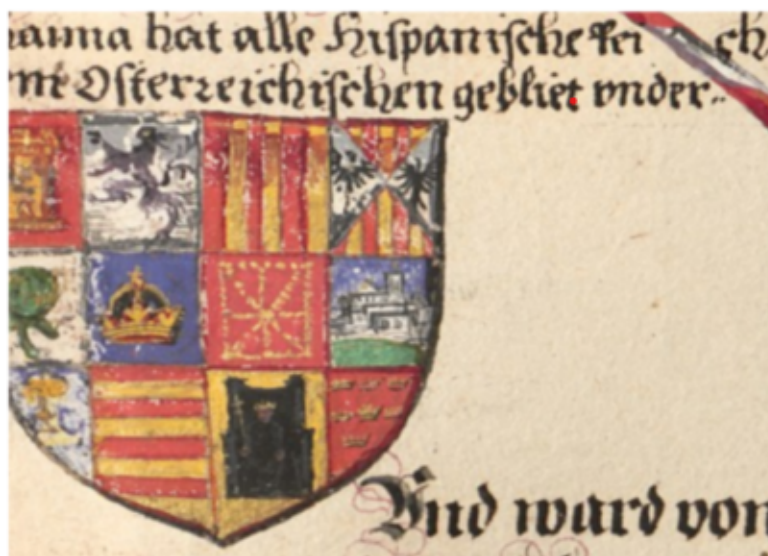 hanna hat alle Hispanische Rei ch
m Osterreichischen gebliet vnder.
Vnd ward von